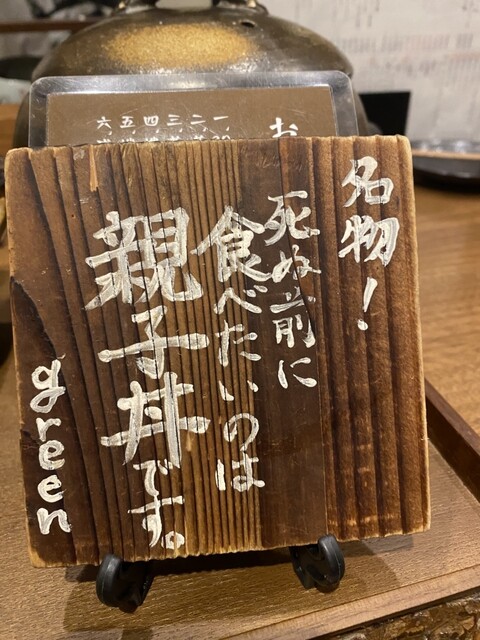 名物！
死ぬ前に
食べたいのは
親子丼です。
green
お
一
二
三
四
五
六